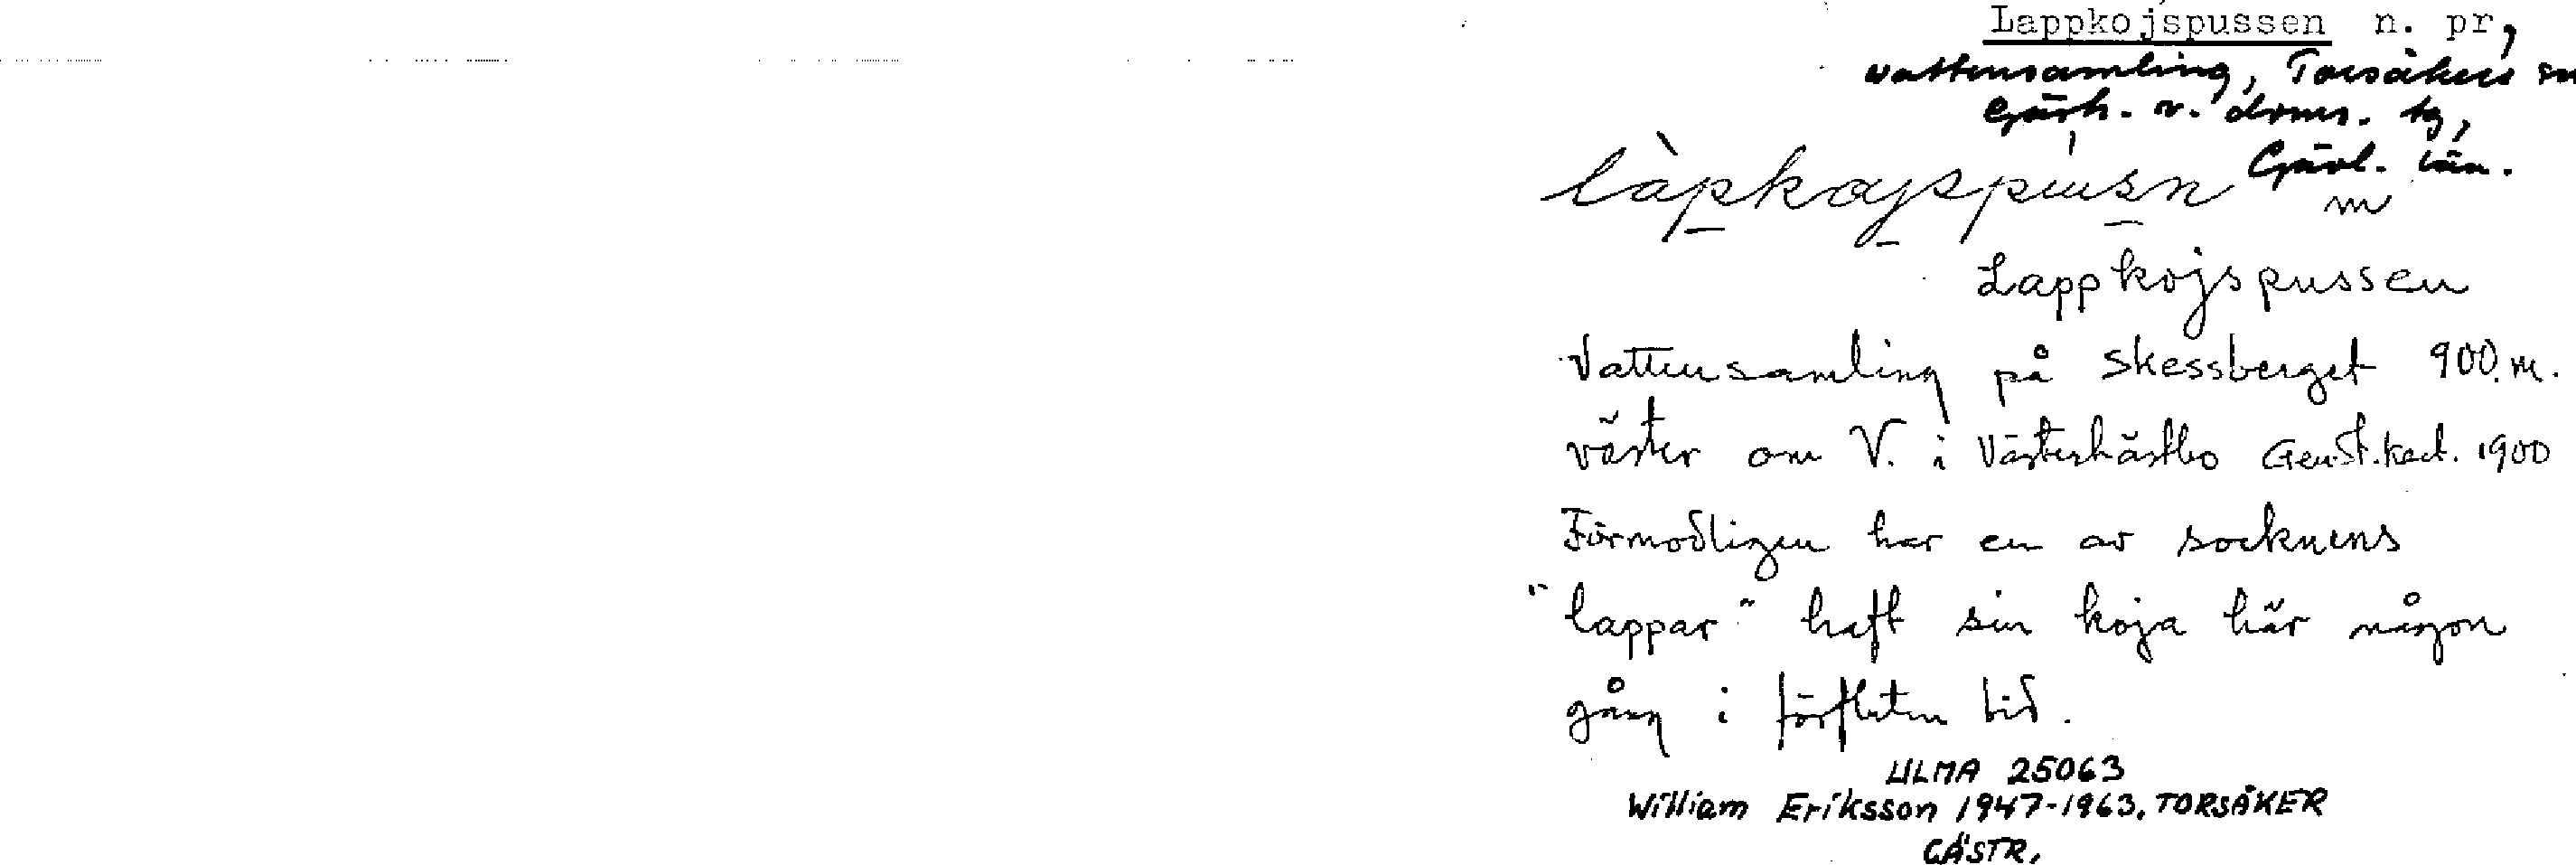 Lappkojspussen n. pr,
vattensamling, Torsåkers sn
Gästr. v. doms. tg,
Gävl. län.
làpkɑjspusn m
Lappkojspussen
Vattensamling på Skessberget 900 m.
väster om V. i Västerhästbo Gen.St.kart. 1900
Förmodligen har en av socknens
"lappar" haft sin koja här någon
gång i förfluten tid.
ULMA 25063
William Eriksson 1947-1963. TORSÅKER
GÄSTR.